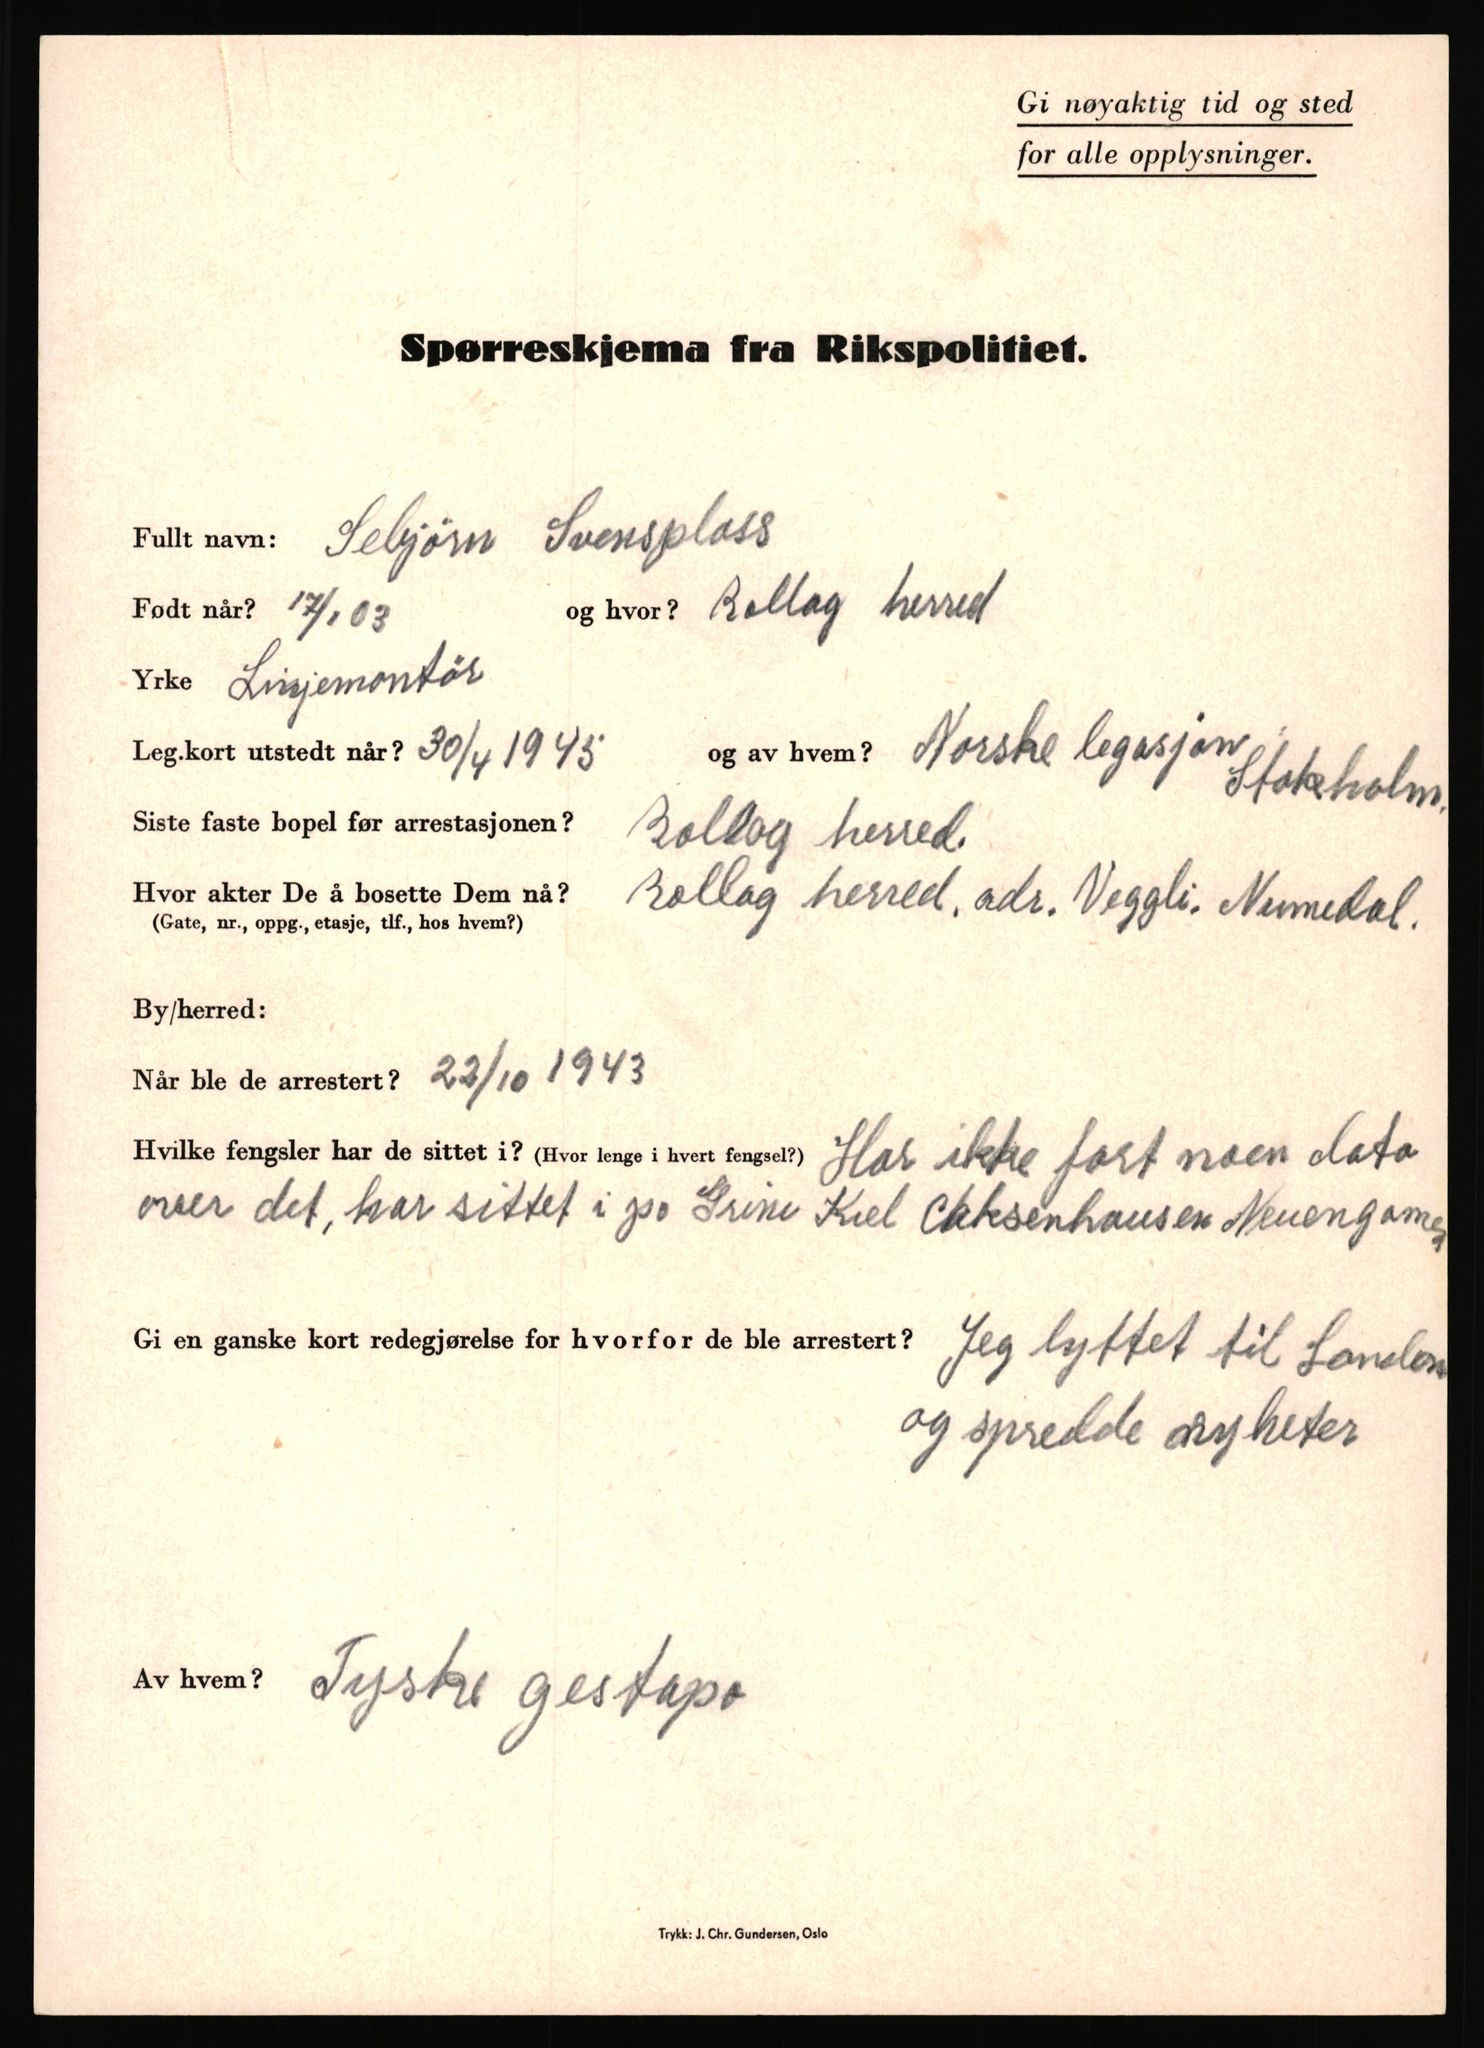 Gi nøyaktig tid og sted
for alle opplysninger.
Spørreskjema fra Rikspolitiet.
Fullt navn: Sebjörn Svensplass
Født når? 17/1 03 og hvor? Rollag herred
Yrke Linjemontör
Leg.kort utstedt når? 30/4 1945 og av hvem? Norske legasjon Stokholm.
Siste faste bopel før arrestasjonen? Rollag herred.
Hvor akter De å bosette Dem nå? Rollag herred. adr. Veggli. Numedal.
(Gate, nr., oppg., etasje, tlf., hos hvem?)
By/herred:
Når ble de arrestert? 22/10 1943
Hvilke fengsler har de sittet i? (Hvor lenge i hvert fengsel?) Har ikke fort noen data
over det, har sittet i po Grini Kiel Neuengamer
Gi en ganske kort redegjørelse for hvorfor de ble arrestert? Jeg lyttet til London
og spredde nyheter
Av hvem? Tyske gestapo
Trykk: J. Chr. Gundersen, Oslo